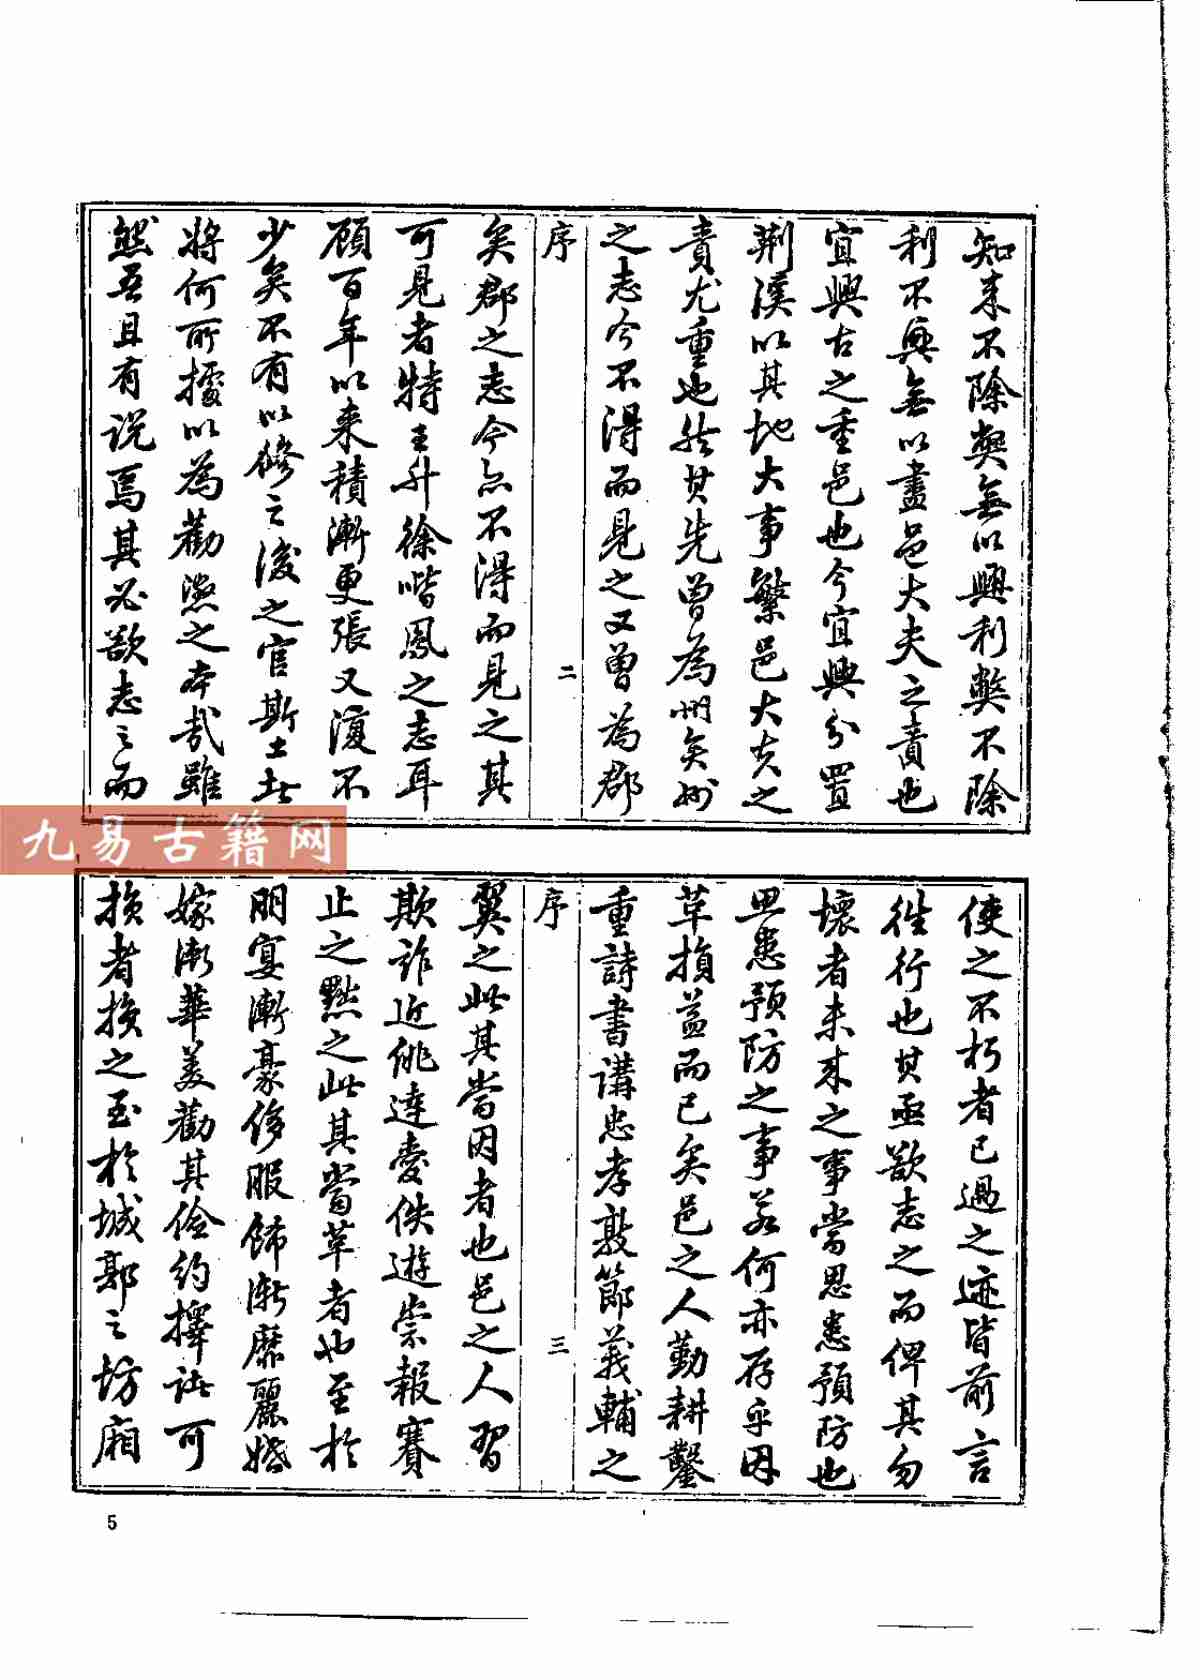 知来不除弊無以興利弊不除
利不興無以盡邑大夫之責也
宜興古之重邑也今宜興分置
荆溪以其地大事繁邑大夫之
責尤重也然其先曾為州矣州
之志今不得而見之又曾為郡
序
二
矣郡之志今亦不得而見之其
可見者特王升徐喈鳳之志耳
顧百年以来積漸更張又復不
少矣不有以修之後之官斯土者
將何所據以為勸懲之本哉雖
然吾且有説焉其必欲志之而
使之不朽者已過之迹皆前言
徃行也其亟欲志之而俾其勿
壞者未来之事當思患預防也
思患預防之事若何亦存乎因
革損益而已矣邑之人勤耕鑿
重詩書講忠孝敦節義輔之
序
三
翼之此其當因者也邑之人習
欺詐近佻達愛佚遊崇報賽
止之黜之此其當革者也至於
朋宴漸豪侈服飾漸靡麗婚
嫁漸華美勸其儉約擇註可
損者損之至於城郭之坊廂
5
九易古籍网